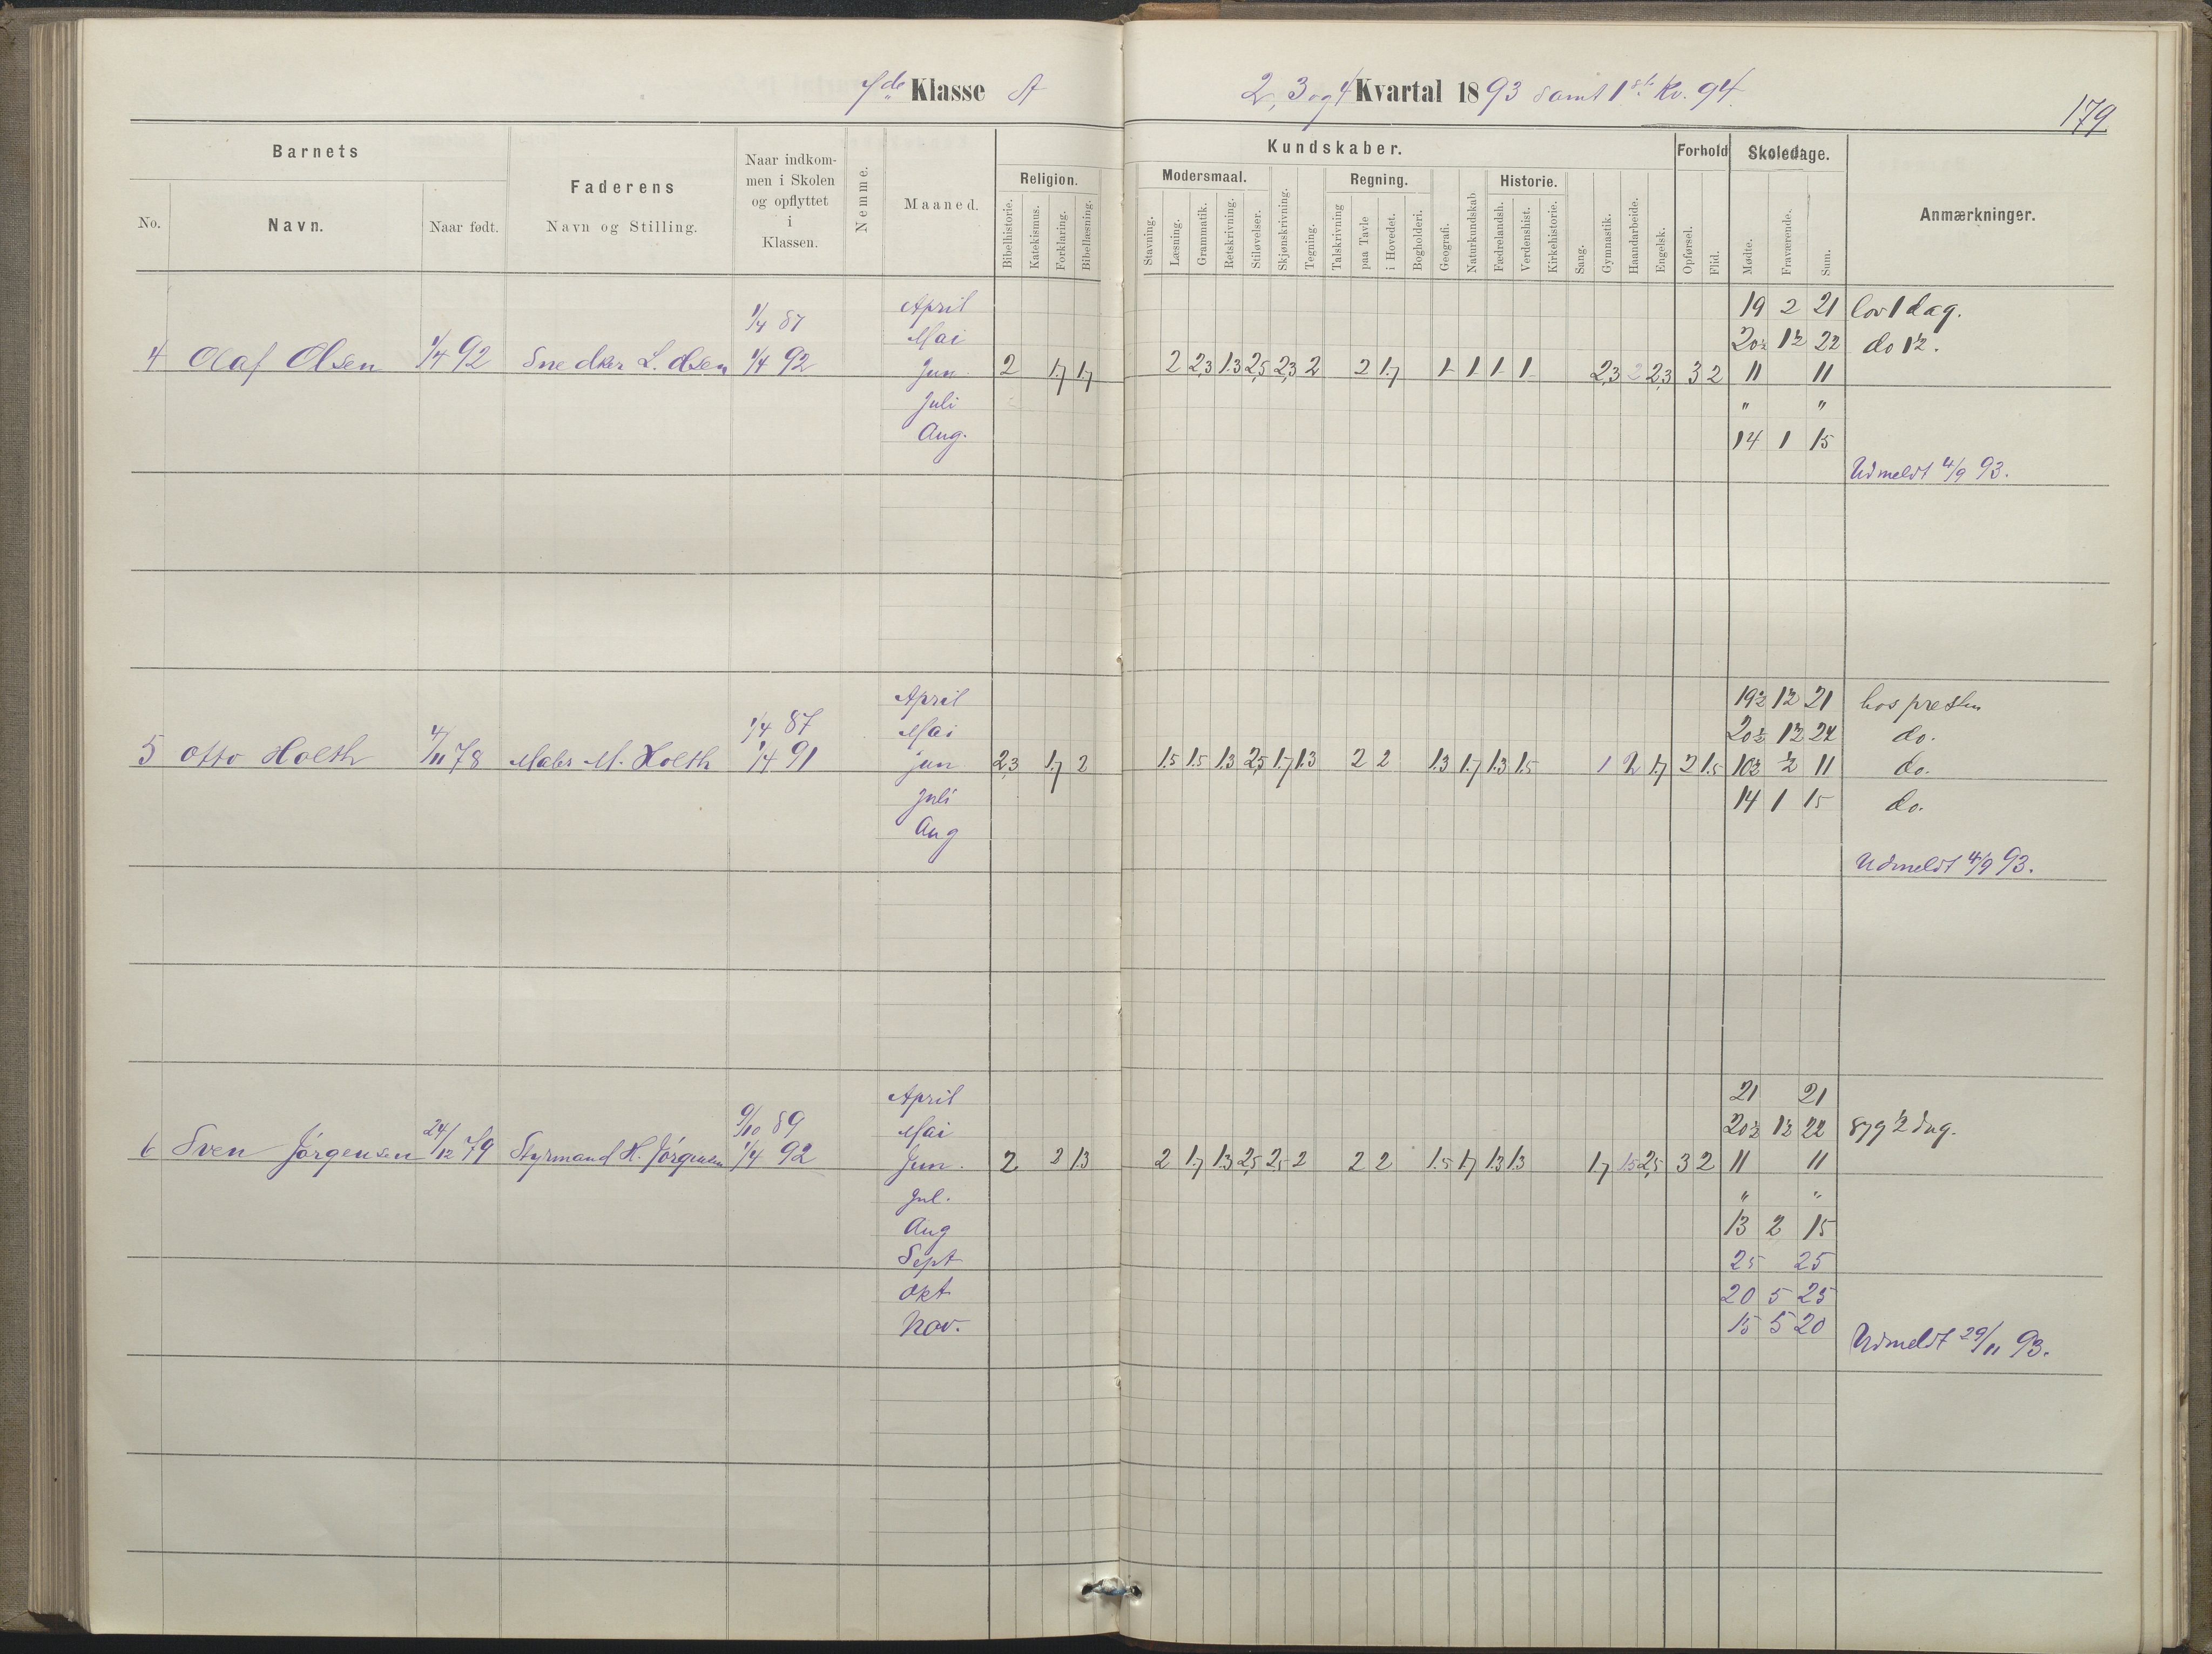 Klasse A
2, 3 og 4 Kvartal 1893 samt 1ste Kv. 94.
179
Barnets
Faderens
Naar indkommen i Skolen og opflyttet i Klassen.
Nemme.
Maaned.
Kundskaber.
Forhold
Skoledage.
Anmærkninger.
No.
Navn.
Naar født.
Navn og Stilling.
Religion.
Modersmaal.
Regning.
Historie.
Bibelhistorie.
Katekismus.
Forklaring.
Bibellæsning.
Stavning.
Læsning.
Grammatik.
Retskrivning.
Stiløvelser.
Skjønskrivning.
Tegning.
Talskrivning
paa Tavle
i Hovedet.
Bogholderi.
Geografi.
Naturkundskab
Fædrelandsh.
Verdenshist.
Kirkehistorie.
Sang.
Gymnastik.
Haandarbeide.
Engelsk.
Opførsel.
Flid.
Mødte.
Fraværende.
Sum.
April 19 2 21 lov 1 dag.
1/4 87
Mai 20½ 1½ 22 do 1½.
4 Olaf Olsen 1/4 92 Snedker L. Olsen 1/4 92 Jun 2 1.7 1.7 2 2,3 1.3 2,5 2,3 2 2 1.7 1 1 1 1 2,3 2 2,3 3 2 11 11
Juli " "
Aug. 14 1 15
Udmeldt 4/9 93.
April 19½ 1½ 21 hos presten
1/4 87
Mai 20½ 1½ 22 do.
5 Otto Holth 4/11 78 Maler M. Holth 1/4 91 Jun 2,3 1.7 2 1.5 1.5 1.3 2,5 1.7 1.3 2 2 1.3 1.7 1.3 1.5 1 2 1.7 2 1.5 10½ ½ 11 do.
Juli 14 1 15 do.
Aug
Udmeldt 4/9 93.
April 21 21
9/10 89
Mai 20½ 1½ 22 syg ½ dag.
6 Sven Jørgensen 24/12 79 Styrmand H. Jørgensen 1/4 92 Jun. 2 2 1.3 2 1.7 1.3 2,5 2,5 2 2 2 1.5 1.7 1.3 1.3 1.7 1.5 2,5 3 2 11 11
Jul. " "
Aug 13 2 15
Sept 25 25
Okt 20 5 25
Nov. 15 5 20
Udmeldt 29/11 93.